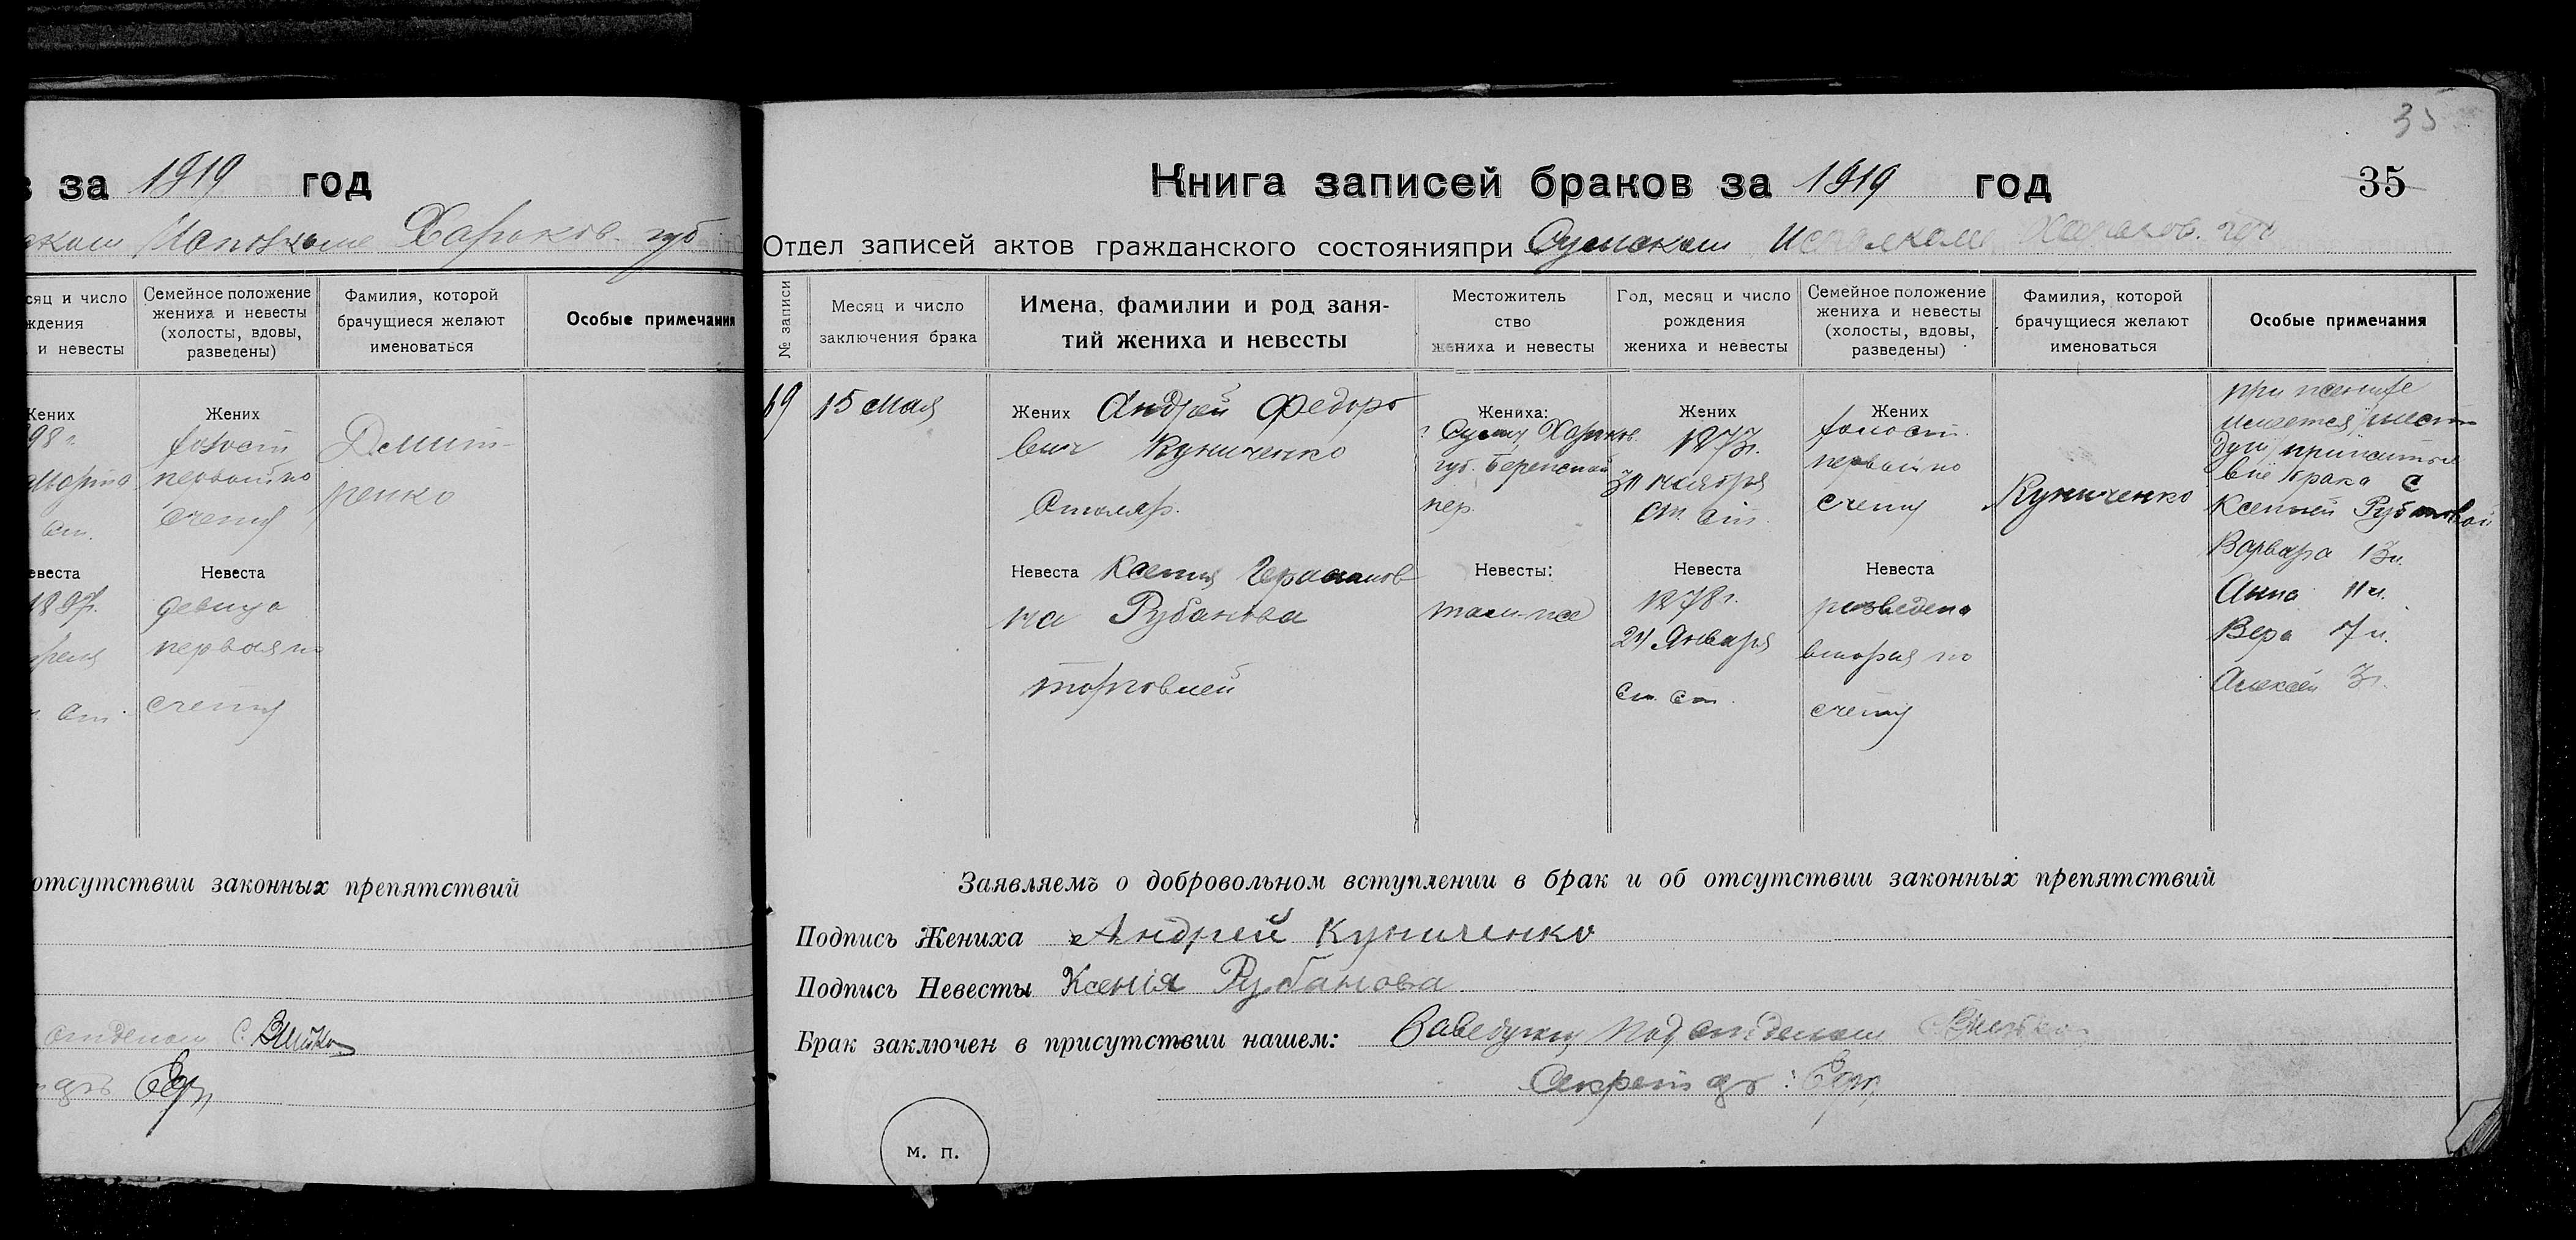 за 1919 год
Исполкоме Харьков. губ
сяц и число
ждения
и невесты
Семейное положение
жениха и невесты
(холосты, вдовы,
разведены)
Фамилия, которой
брачущиеся желают
именоваться
Особые примечания
Жених
98 г.
ст.
Жених
холост
первый по
счету
Дмит-
ренко
евеста
ст.
Невеста
девица
первая по
счету
отсутствии законных препятствий
35
Книга записей браков за 1919 год
35
Отдел записей актов гражданского состоянияпри Сумском Исполкоме Харьков. губ
№ записи
Месяц и число
заключения брака
Имена, фамилии и род заня-
тий жениха и невесты
Местожитель
ство
жениха и невесты
Год, месяц и число
рождения
жениха и невесты
Семейное положение
жениха и невесты
(холосты, вдовы,
разведены)
Фамилия, которой
брачущиеся желают
именоваться
Особые примечания
69
15 мая
Жених Андрей Федоро
вич Куниченко
Столяр.
Невеста Ксения Герасимов
на Рубанова
торговлей
Жениха:
г. Сумы, Харьков.
губ.
пер.
Невесты:
там-же
Жених
1873г.
30 ноября
ст. ст.
Невеста
1878г.
24 Января
ст. ст.
Жених
холост.
первый по
счету
Невеста
разведена
вторая по
счету
Куниченко
при
имеется
вне брака с
Ксенией Рубановой
Варвара 13л.
Анна 11л.
Вера 7л.
Алексей 3г.
Заявляемъ о добровольном вступлении в брак и об отсутствии законных препятствий
Подпись Жениха Андрей Куниченко
Подпись Невесты Ксенія Рубанова
Брак заключен в присутствии нашем: Заведующ. Подотделом
Секрет
м. п.